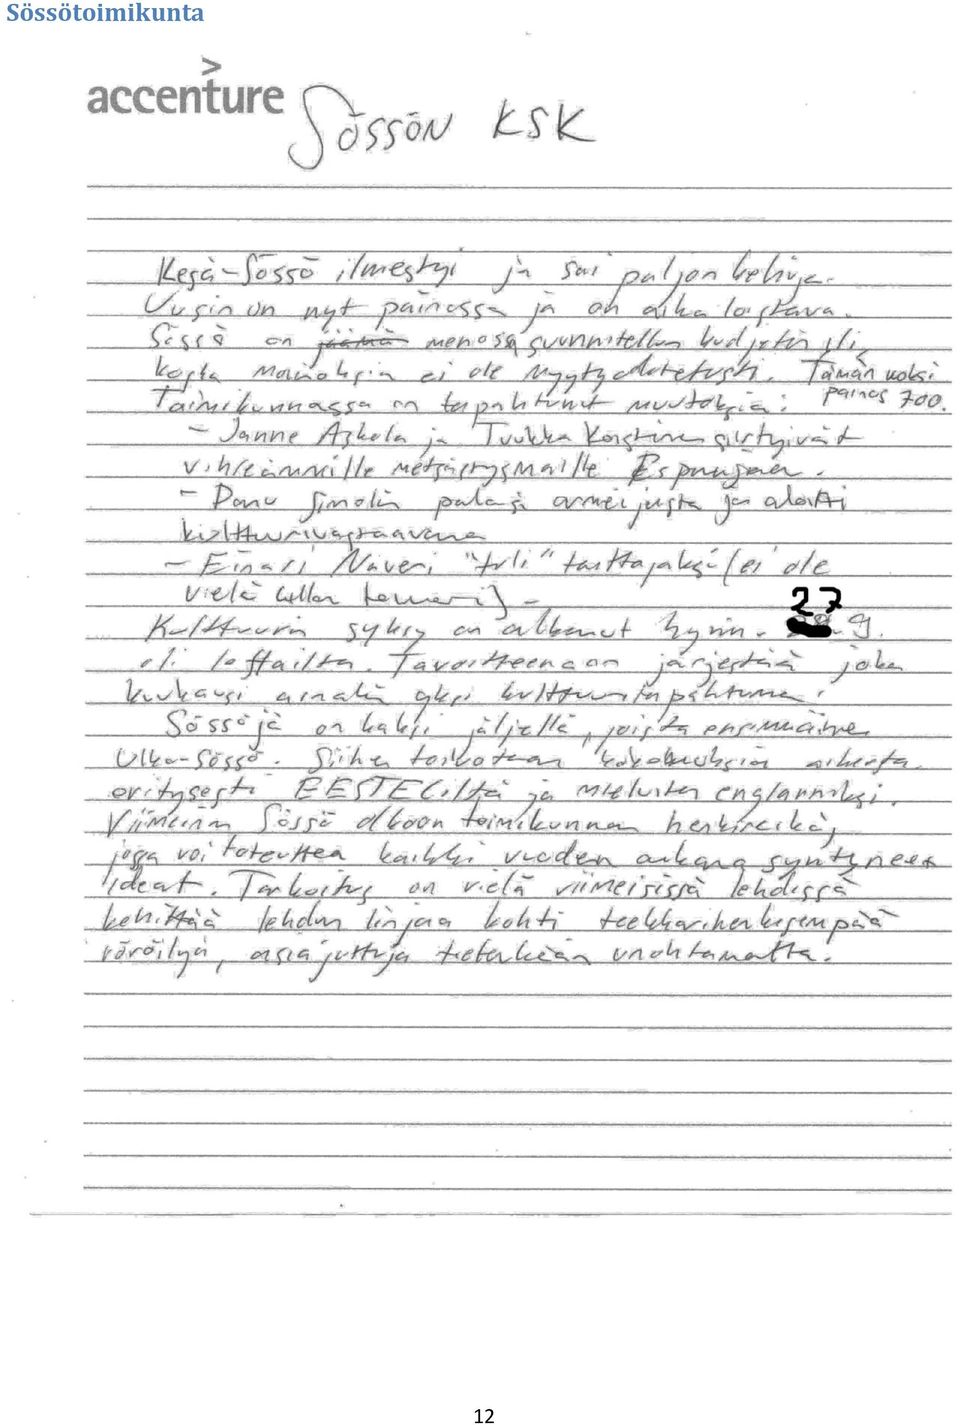 Sössötoimikunta
accenture
Sössön KSK
Kesä-Sössö ilmestyi ja sai paljon kehuja.
Uusin on nyt painossa ja on aika loistava.
Sössö on jäämä menossa suunnitellun budjetin yli
koska mainoksia ei ole myyty odotetusti. Tämän vuoksi
painos 700.
Toimikunnassa on tapahtunut muutoksia:
- Janne Askola ja Tuukka Koistinen siirtyivät
vihreämmille metsästysmaille Espanjaan.
- Panu Simolin palasi armeijasta ja aloitti
kulttuurivastaavana
- Einari Naveri "tuli" taittajaksi (ei ole
vielä ollut koneella) -
Kulttuurin syksy on alkanut hyvin. 27.9.
oli leffailta. Tavoitteena on järjestää joka
kuukausi ainakin yksi kulttuuritapahtuma.
Sössöjä on kaksi jäljellä, joista ensimmäinen
Ulko-Sössö. Siihen toivotaan kokemuksia aiheesta
erityisesti EESTECiltä ja mieluiten englanniksi.
Viimeinen Sössö olkoon toimikunnan henkireikä,
jossa voi toteuttaa kaikki vuoden aikana syntyneet
ideat. Tarkoitus on vielä viimeisissä lehdissä
kehittää lehden linjaa kohti teekkarihenkisempää
väräilyä, asiajuttuja tietenkään unohtamatta.
12